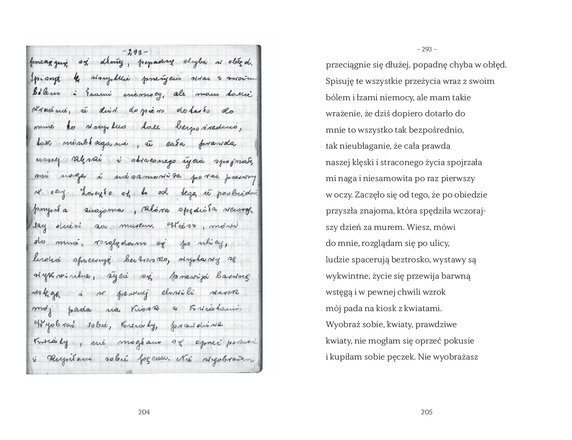 -293-
przeciągnie się dłużej, popadnę chyba w obłęd.
Spisuję te wszystkie przeżycia wraz z swoim
bólem i łzami niemocy, ale mam takie
wrażenie, iż dziś dopiero dotarło do
mnie to wszystko tak bezpośrednio,
tak nieubłaganie, iż cała prawda
naszej klęski i straconego życia spojrzała
mi naga i niesamowita po raz pierwszy
w oczy. Zaczęło się to od tego iż po obiedzie
przyszła znajoma, która spędziła wczoraj-
szy dzień za murem. Wiesz, mówi
do mnie, rozglądam się po ulicy,
ludzie spacerują beztrosko, wystawy są
wykwintne, życie się przewija barwną
wstęgą i w pewnej chwili wzrok
mój pada na kiosk z kwiatami.
Wyobraź sobie, kwiaty, prawdziwe
kwiaty, nie mogłam się oprzeć pokusie
i kupiłam sobie pęczek. Nie wyobrażasz
204
– 293 –
przeciągnie się dłużej, popadnę chyba w obłęd.
Spisuję te wszystkie przeżycia wraz z swoim
bólem i łzami niemocy, ale mam takie
wrażenie, że dziś dopiero dotarło do
mnie to wszystko tak bezpośrednio,
tak nieubłaganie, że cała prawda
naszej klęski i straconego życia spojrzała
mi naga i niesamowita po raz pierwszy
w oczy. Zaczęło się od tego, że po obiedzie
przyszła znajoma, która spędziła wczoraj-
szy dzień za murem. Wiesz, mówi
do mnie, rozglądam się po ulicy,
ludzie spacerują beztrosko, wystawy są
wykwintne, życie się przewija barwną
wstęgą i w pewnej chwili wzrok
mój pada na kiosk z kwiatami.
Wyobraź sobie, kwiaty, prawdziwe
kwiaty, nie mogłam się oprzeć pokusie
i kupiłam sobie pęczek. Nie wyobrażasz
205